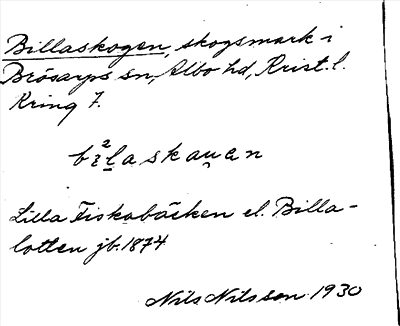 Billaskogen, skogsmark i
Brösarps sn, Albo hd, Krist. l.
Kring 7.
b²ɪlaskau̯en
Lilla Fiskabäcken el. Billa-
lotten jb. 1874
Nils Nilsson 1930